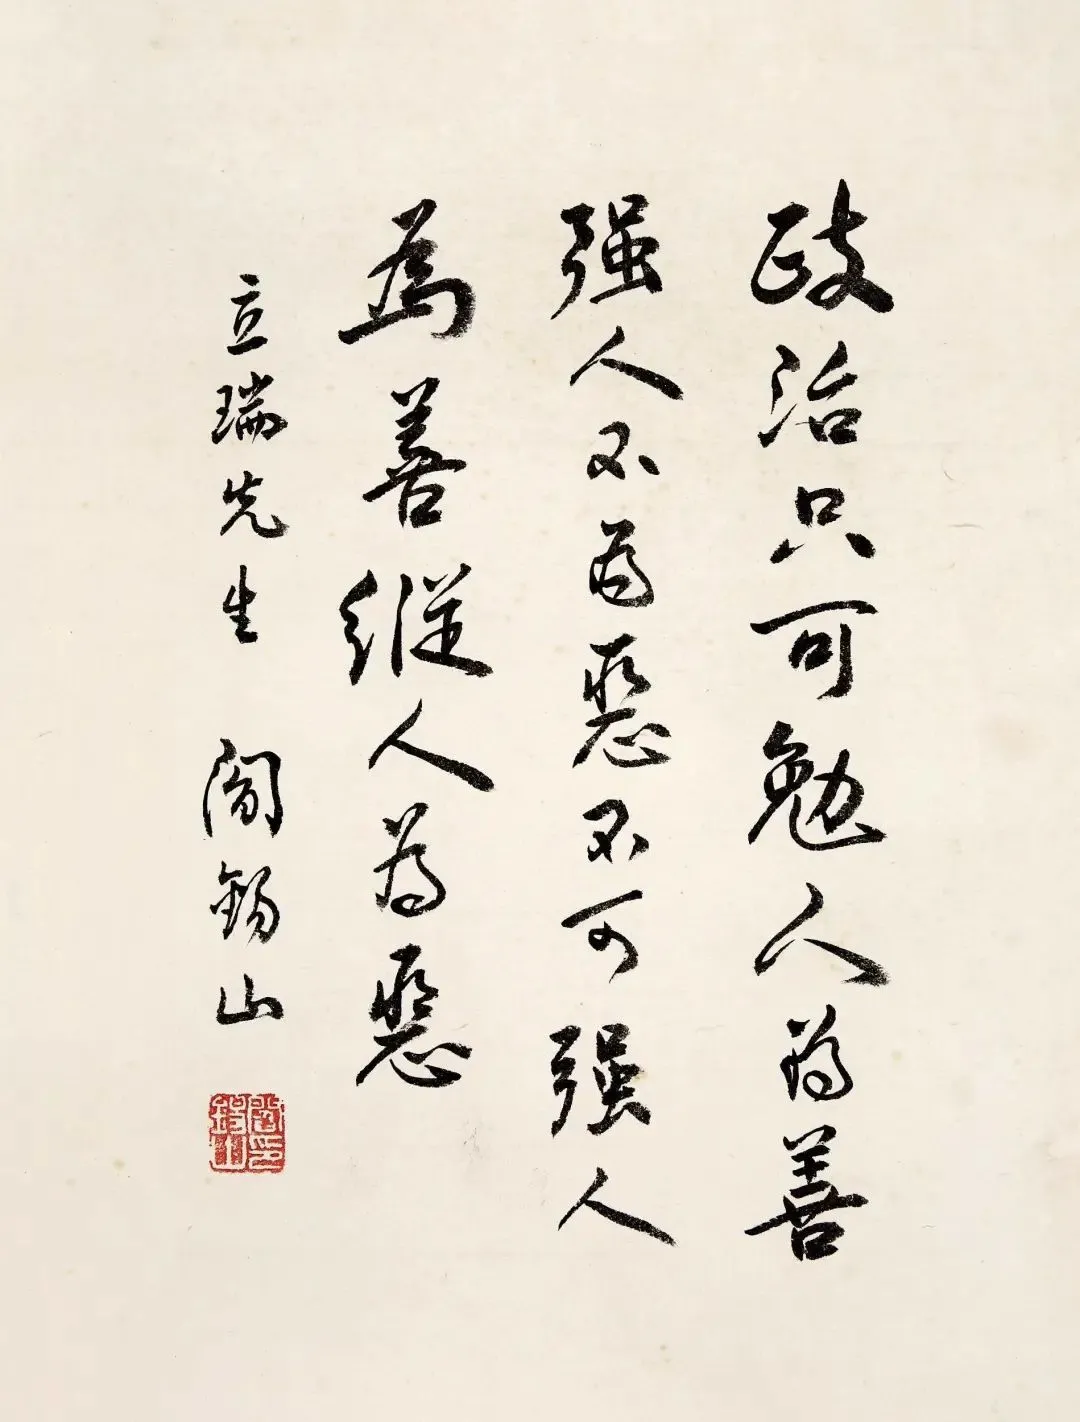 政治只可勉人為善
强人不為惡不可强人
為善縱人為惡
立瑞先生 閻錫山
閻錫山印